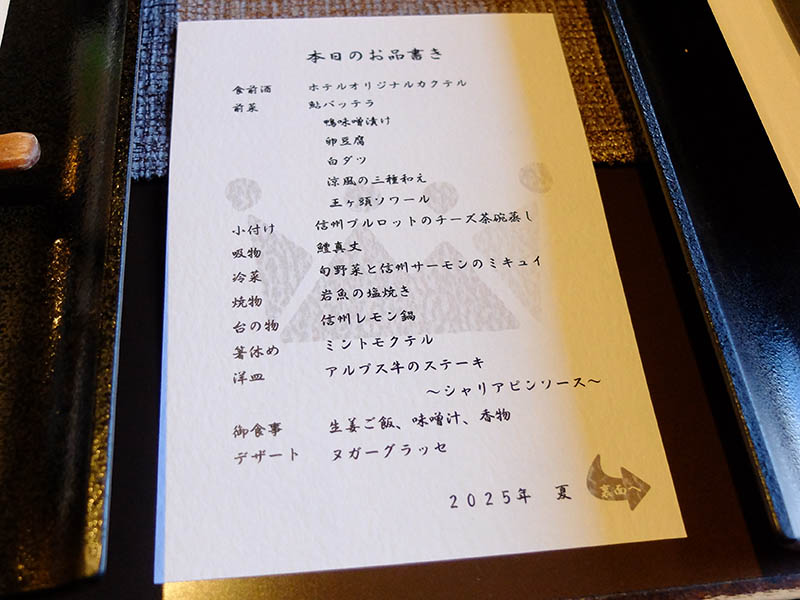 本日のお品書き
食前酒 ホテルオリジナルカクテル
前菜 鮎バッテラ
鴨味噌漬け
卵豆腐
白ダツ
涼風の三種和え
王ヶ頭ソワール
小付け 信州ブルロットのチーズ茶碗蒸し
吸物 鱧真丈
冷菜 旬野菜と信州サーモンのミキュイ
焼物 岩魚の塩焼き
台の物 信州レモン鍋
箸休め ミントモクテル
洋皿 アルプス牛のステーキ
～シャリアピンソース～
御食事 生姜ご飯、味噌汁、香物
デザート ヌガーグラッセ
2025年 夏
裏面へ